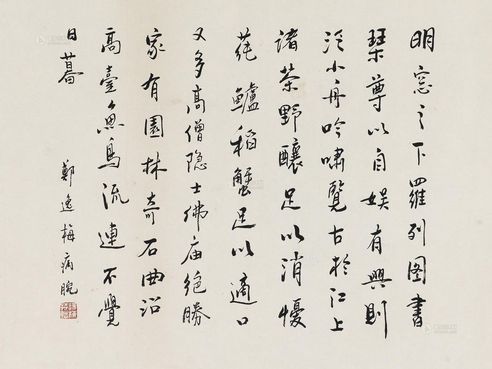 明窓之下羅列图書
琹尊以自娱有興則
泛小舟吟嘯覽古於江上
渚茶野釀足以消憂
蒓鱸稻蟹足以適口
又多高僧隐士佛庙绝勝
家有園林奇石曲沼
高臺魚鳥流連不覺
日暮
鄭逸梅病腕